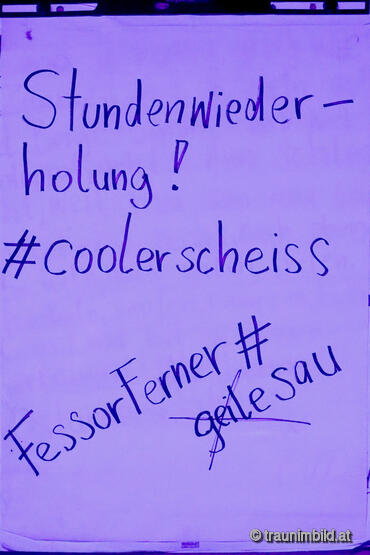 Stundenwieder-
holung!
#coolerscheiss
FessorFerner#
geilesau
© traunimbild.at